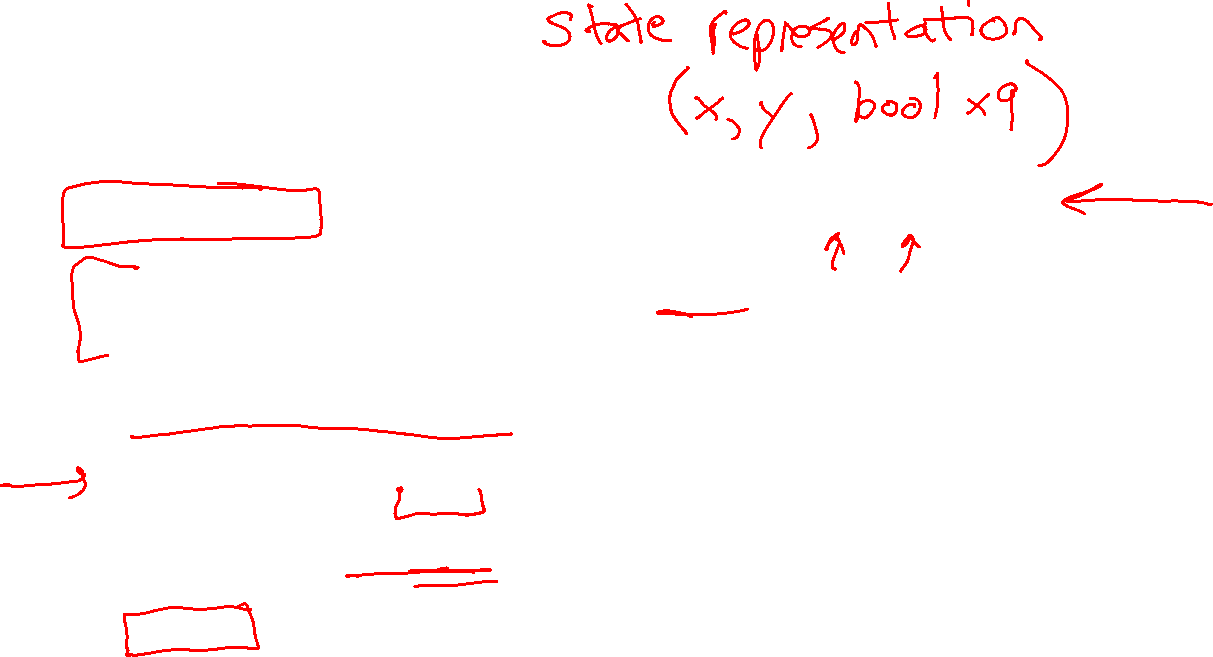 state representation
(x, y, bool x9)